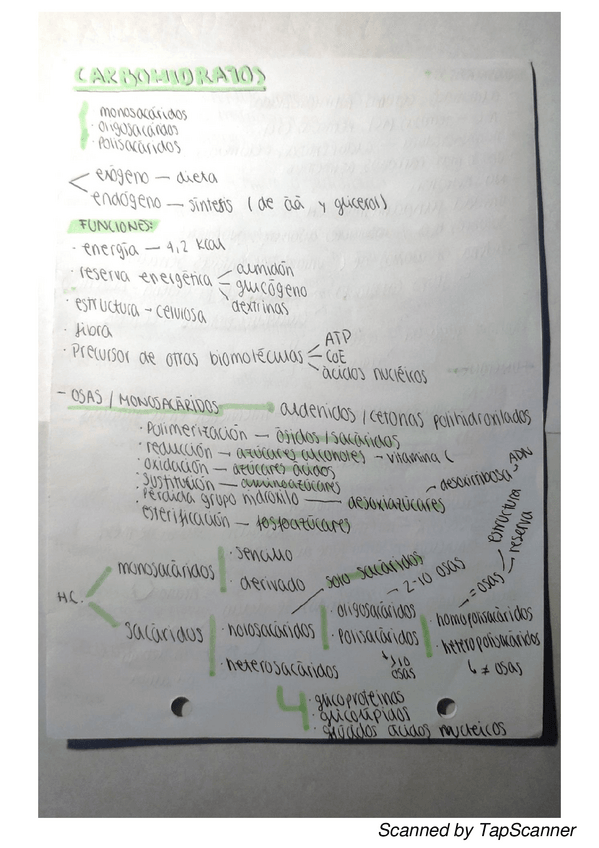 CARBOHIDRATOS
· monosacáridos
· oligosacáridos
· polisacáridos
exógeno — dieta
endógeno — síntesis (de āā y glicerol)
FUNCIONES:
· energía — 4,2 kcal
· reserva energética
almidón
glucógeno
dextrinas
· estructura - celulosa
· fibra
· Precursor de otras biomoléculas
ATP
CoE
ácidos nucléicos
- OSAS / MONOSACÁRIDOS
aldehídos / cetonas polihidroxilados
· Polimerización — ósidos / sacáridos
· reducción — azúcares alcoholes - vitamina C
· oxidación — azúcares ácidos
· sustitución — aminoazúcares
· Pérdida grupo hidroxilo — desoxiazúcares - desoxirribosa - ADN
esterificación — fosfoazúcares
HC.
monosacáridos
· sencillo
· derivado
sacáridos
· holosacáridos
solo sacáridos
· oligosacáridos
- 2-10 osas
· Polisacáridos
>10 osas
· homopolisacáridos
= osas
estructura
reserva
· heteropolisacáridos
≠ osas
· heterosacáridos
· glicoproteínas
· glicolípidos
ácidos nucleicos
Scanned by TapScanner